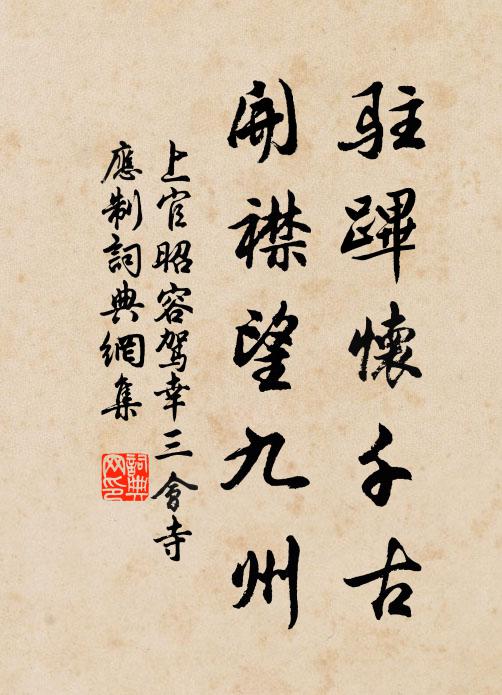 駐蹕懷千古
開襟望九州
上官昭容駕幸三會寺
應制詞典網集
詞典
网印